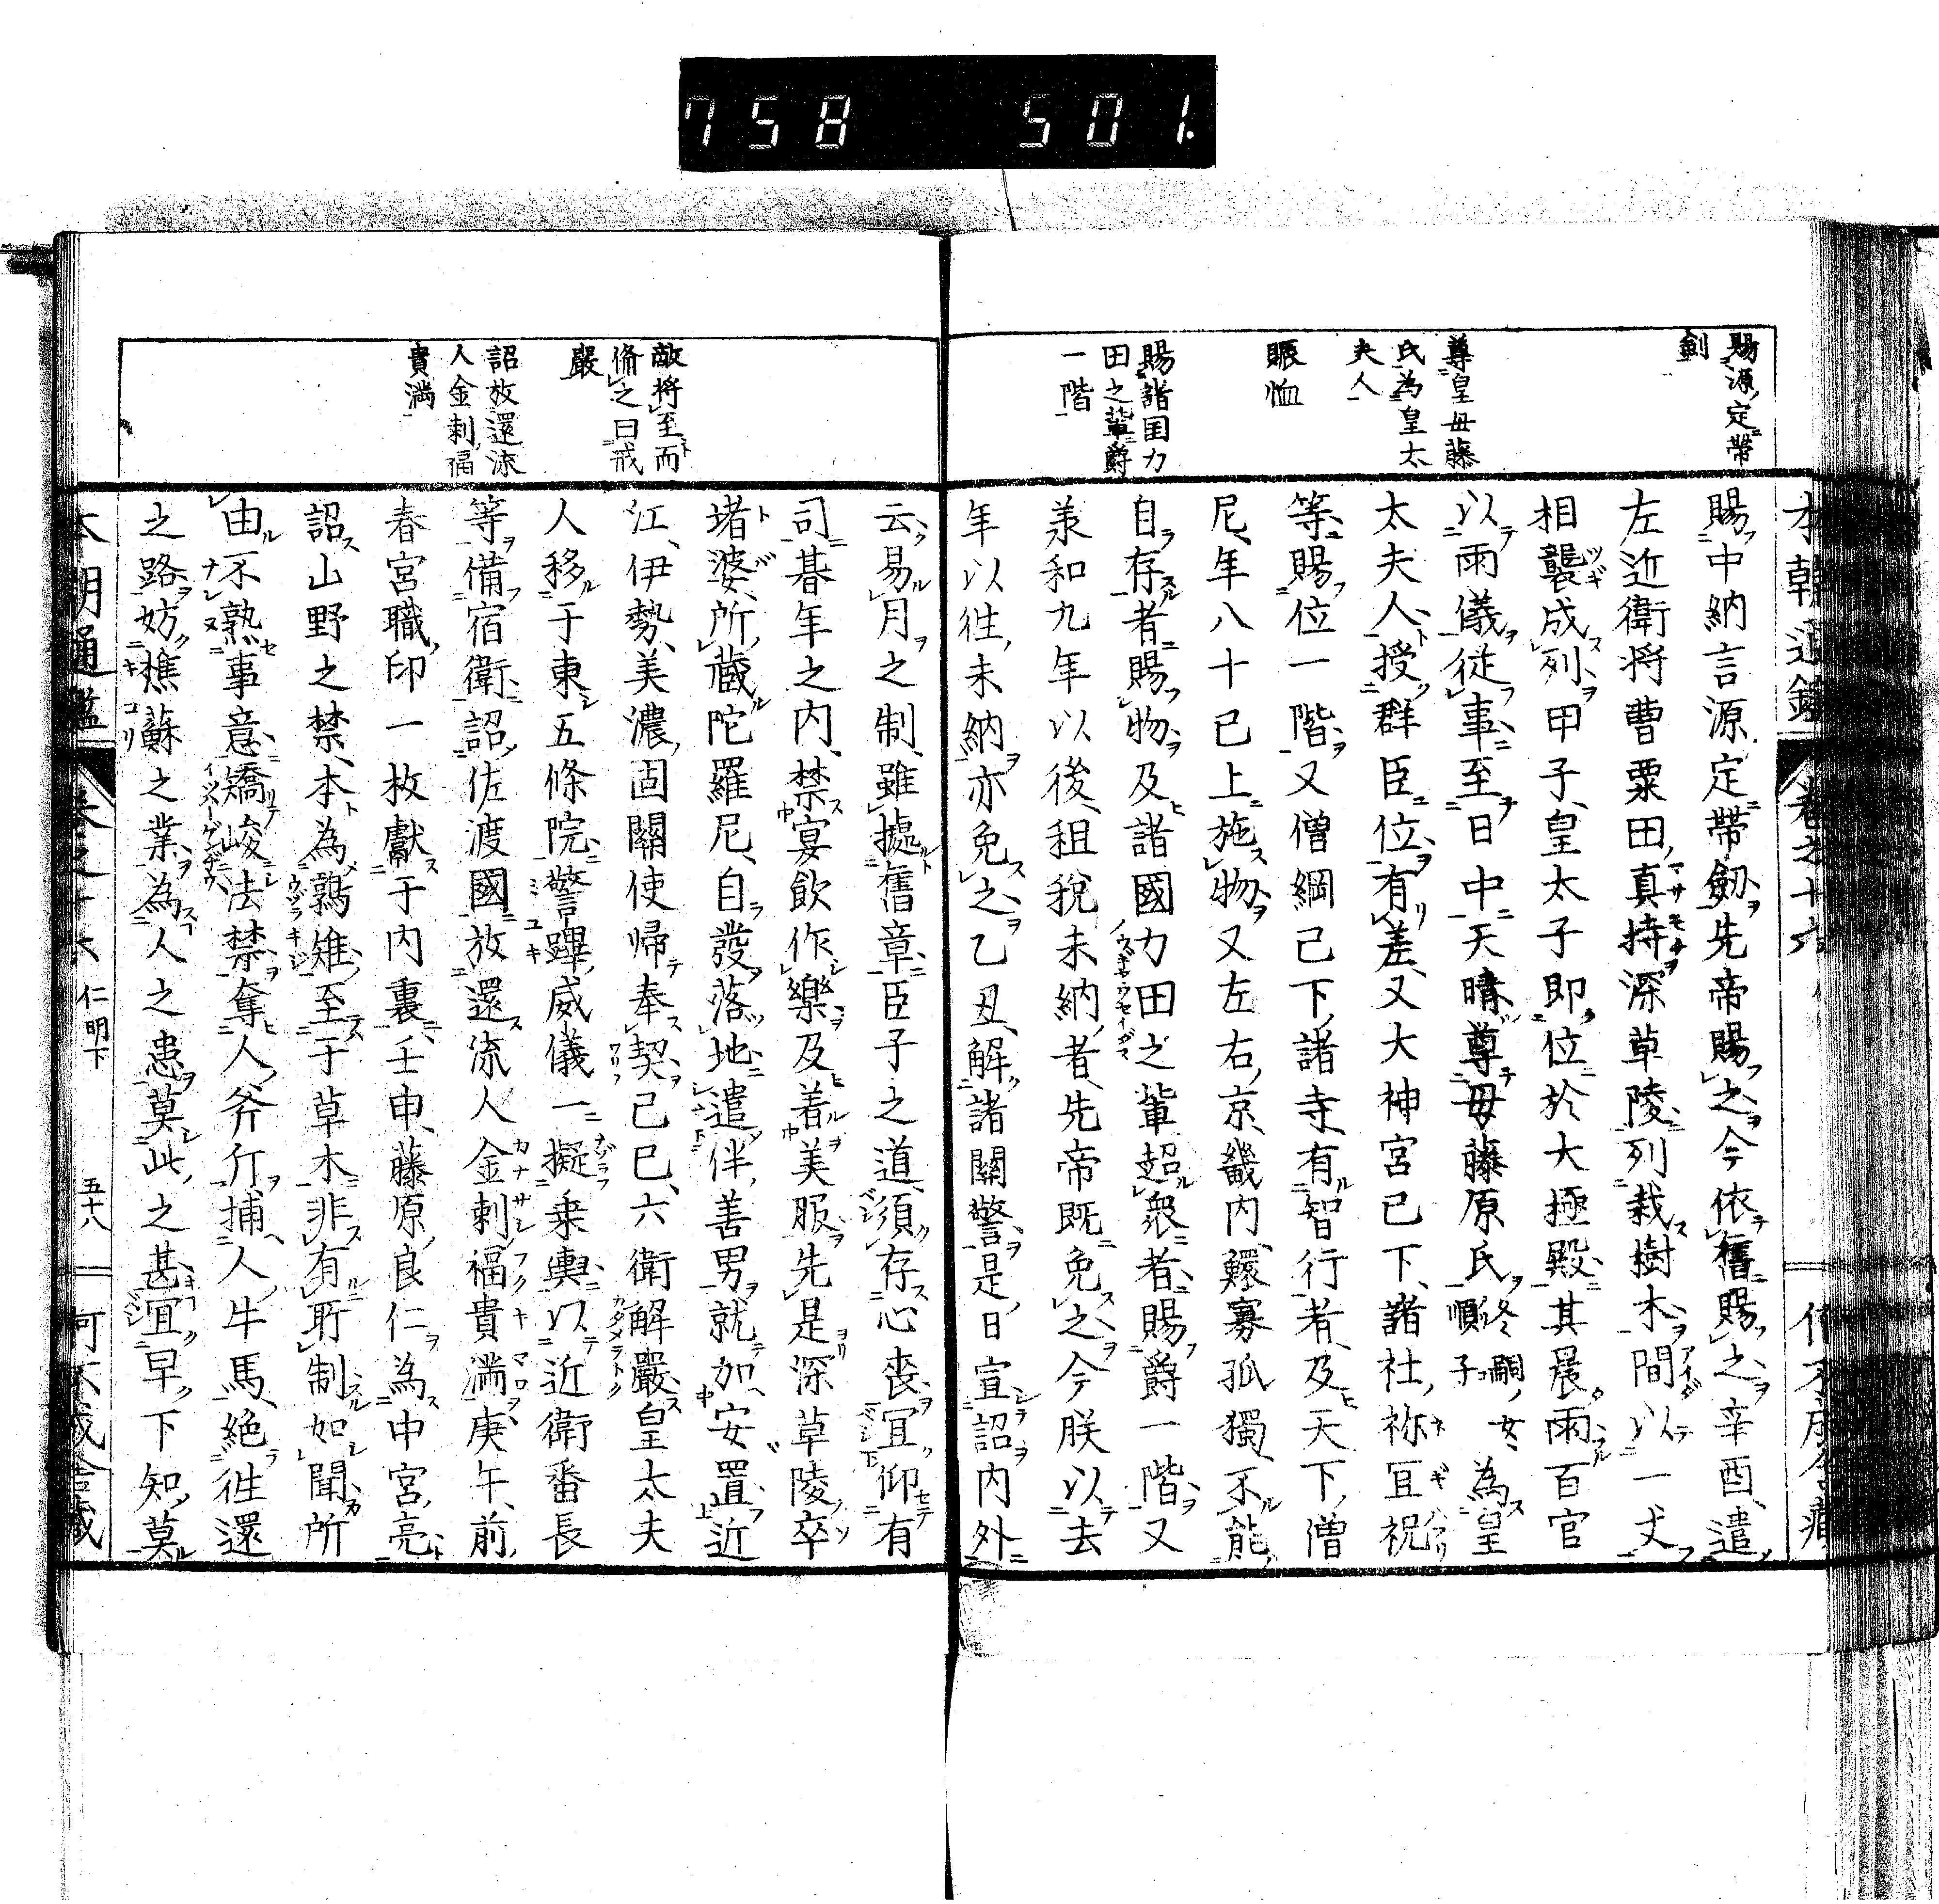 758 501.
本朝通鑑 卷之十六
賜源定帶
劍
尊皇母藤
氏為皇太
夫人
賑恤
賜諸国力
田之輩爵
一階
賜中納言源定帶劔先帝賜之今依舊賜之辛酉遣
左近衛将曹粟田真持深草陵列栽樹木間以一丈
相襲成列甲子皇太子即位於大極殿其晨雨百官
以雨儀從事至日中天晴尊母藤原氏冬嗣女順子為皇
太夫人授群臣位有差又大神宮已下諸社祢冝祝
等賜位一階又僧綱已下諸寺有智行者及天下僧
尼年八十已上施物又左右京畿内鰥寡孤獨不能
自存者賜物及諸國力田之輩超衆者賜爵一階又
羕和九年以後租税未納者先帝既免之今朕以去
年以徃未納亦免之乙丑解諸關警是日宣詔内外
敵将至而
脩之曰戒
嚴
詔放還流
人金刺福
貴満
云易月之制雖據舊章臣子之道須存心喪宜仰有
司朞年之内禁宴飲作樂及着美服先是深草陵卒
堵婆所藏陀羅尼自發落地遣伴善男就加安置近
江伊勢美濃固關使帰奉契己巳六衛解嚴皇太夫
人移于東五條院警蹕威儀一擬乗輿以近衛番長
等備宿衛詔佐渡國放還流人金刺福貴満庚午前
春宮職印一枚獻于内裏壬申藤原良仁為中宮亮
詔山野之禁本為鶉雉至于草木非有所制如聞所
由不熟事意矯峻法禁奪人斧斤捕人牛馬絶徃還
之路妨樵蘇之業為人之患莫此之甚冝早下知莫
本朝通鑑 卷之十六 仁明下 五十八